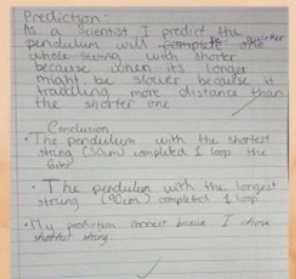 Prediction:
As a Scientist I predict the
pendulum will be quicker
whole swing with shorter
because when its longer
might be slower because it
travelling more distance than
the shorter one
Conclusion
• The pendulum with the shortest
string (30cm) completed 1 loop the
• The pendulum with the longest
string (90cm) completed 1 loop
• My prediction correct I chose
shortest string.